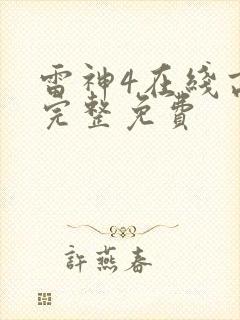 雷神4在綫
完整免費
許燕春